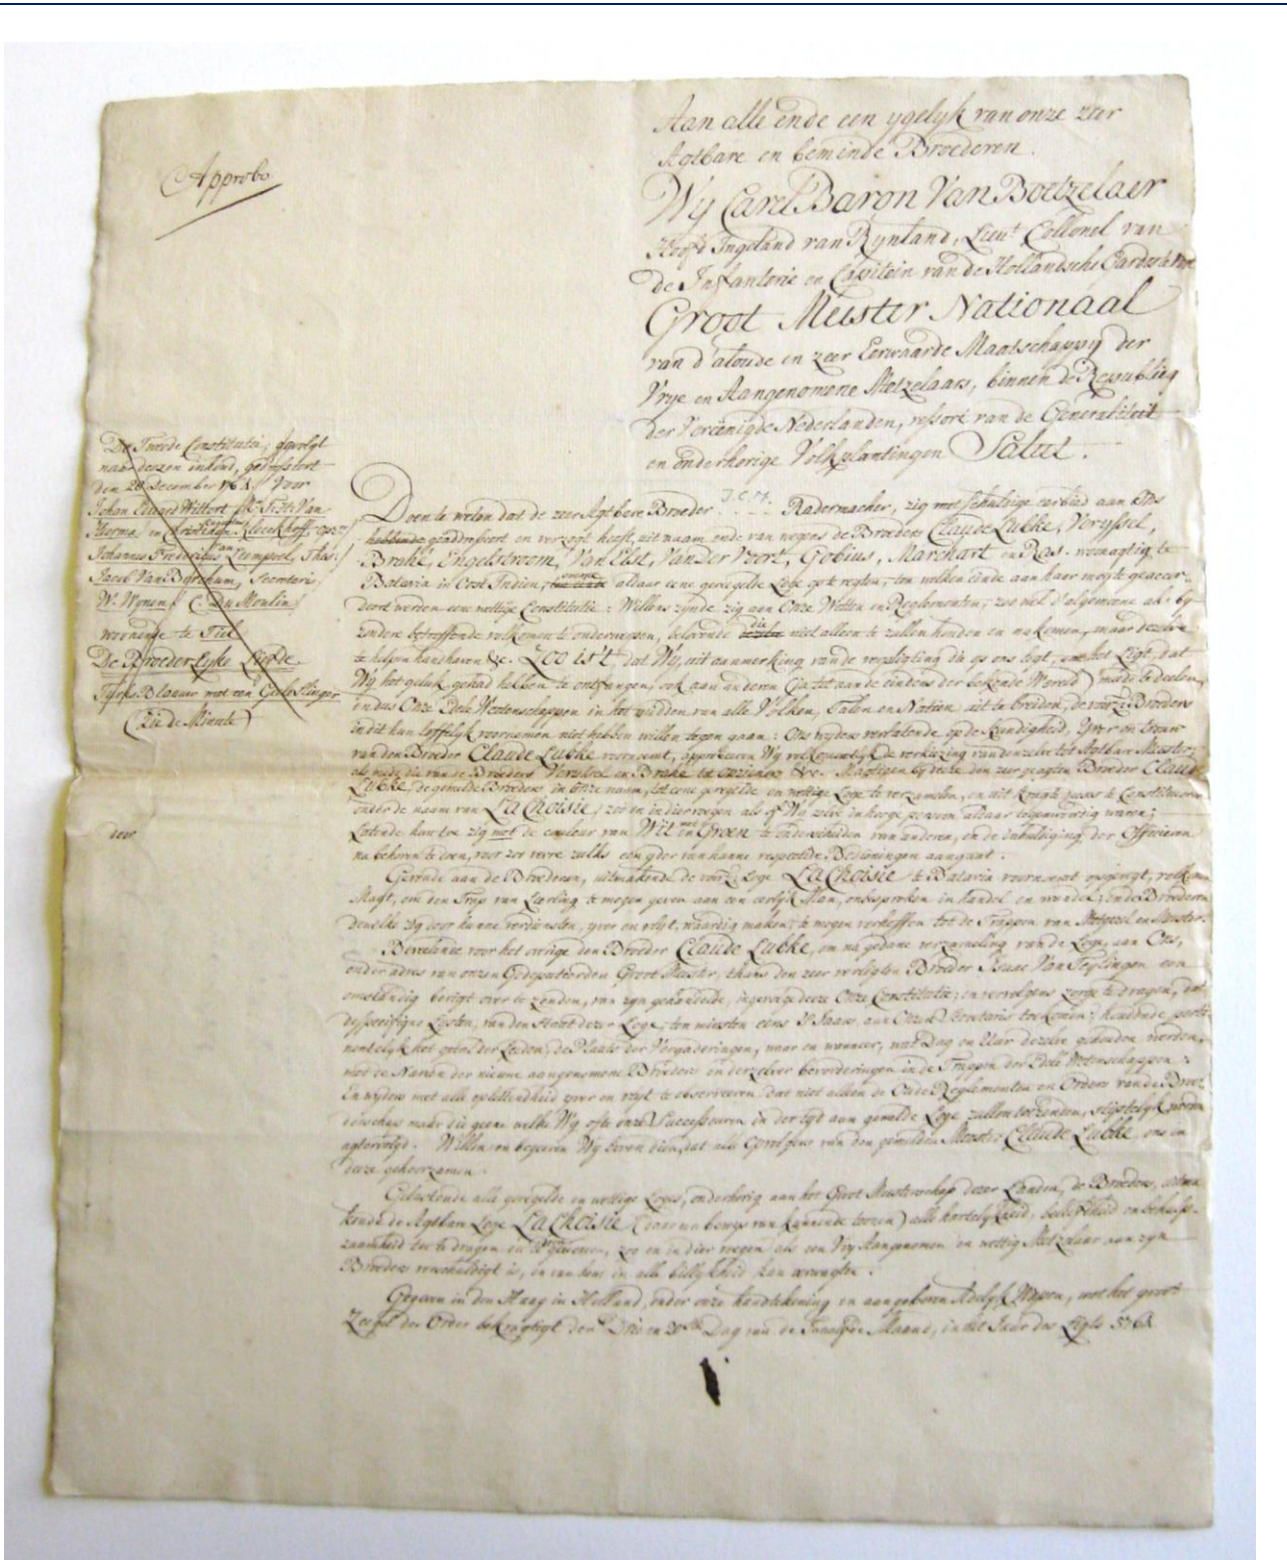 Approbo
Aan alle ende een ygelyk van onze zeer
Agtbare en beminde Broederen.
Wy Carel Baron Van Boetzelaer
Hoofd Ingeland van Rynland, Lieut Collonel van
de Infanterie en Capitein van de Hollandsche Gardes te
Groot Meister Nationaal
van d'aloude en zeer Eerwaarde Maatschappij der
Vrye en Aangenomene Metzelaars, binnen de Republieq
der Vereenigde Nederlanden, ressort van de Generaliteit
en onderhorige Volkplantingen Salut.
De Tweede Constitutie, gevolgt
naar dezen inhoud,
den 28 December 1761. Voor
Johan Eduard Van
Johannes Fredericus
Jacob Van Secretaris
W. Wynen C. Du Moulin
woonende te Tiel
De Broederlyke Liefde.
Blaauw met een
(zie de Minute)
door
Doen te weten dat de zeer Agtbare Broeder J.C.M. Radermacher, zig met schuldige eerbied aan Ons
geaddresseert en verzogt heeft, uit naam ende van wegens de Broeders Claude Lubke, Veryssel,
Brake, Engelstroom, Van Elst, Van Der Voort, Gobius, Marchart en Ras. woonagtig te
Batavia in Oost Indien, omme aldaar eene geregelde Loge op te regten, ten welken einde aan haar mogte geaccor-
deert werden eene wettige Constitutie: Willens zynde zig aan Onze Wetten en Reglementen, zoo wel d'algemeene als by-
zondere betreffende volkomen te onderwerpen, belovende die niet alleen te zullen houden en nakomen, maar dezelve
te helpen handhaven &c. Zoo is't, dat Wy, uit aanmerking van de verpligting die op ons legt, om het Ligt, dat
Wy het geluk gehad hebben te ontfangen, ook aan anderen (ja tot aan de eindens der bekende Wereld) mede te deelen,
en dus Onze Edele Wetenschappen in het midden van alle Volken, Talen en Natien uit te breiden, de voorz: Broeders
in dit hun loffelyk voornemen niet hebben willen tegen gaan: Ons wyders verlatende op de kundigheid, Yver en trouw
van den Broeder Claude Lubke voornoemt, approbeeren Wy de verkiezing van denzelve tot Agtbare Meester,
als mede die van de Broeders Veryssel en Brake tot opzienders &c. Magtigen by deeze den zeer geagten Broeder Claude
Lubke, de gemelde Broeders in Onze naam, tot eene geregelde en wettige Loge te verzamelen, en uit te Constitueeren
onder de naam van La Choisie, zoo en in dier voegen als of Wy zelve in hooge persoon aldaar tegenwoordig waren;
Latende hun toe zig met de couleur van Wit en Groen te onderscheiden van anderen, en de inhuldiging der Officieren
na behoren te doen, voor zoo verre zulks een yder van hunne respective Bedieningen aangaat.
Gevende aan de Broederen, uitmakende de voorz: Loge La Choisie te Batavia voornoemt opgeregt, volkomen
Magt, om den Trap van Leerling te mogen geven aan een eerlyk Man, onbesproken in handel en wandel; ende Broederen
denwelke zig door hunne verdiensten, yver en vlyt, waardig maken, te mogen verheffen tot de Trappen van Metgezel en Meester.
Bevelende voor het overige den Broeder Claude Lubke, om na gedane verzameling van de Loge, aan Ons,
onder adres van onzen Gedeputeerden Groot Meester, thans den zeer verligten Broeder Isaac Van Teylingen een
omstandig berigt over te zenden, van zyn gehandelde, ingevolge deeze Onze Constitutie; en vervolgens zorge te dragen, dat
despecifique Lysten, van den Staat dezer Loge, ten minsten eens 's Jaars aan Onzen Secretaris toekomen; houdende perti-
nentelyk het getal der Leeden, de Plaats der Vergaderingen, waar en wanneer, wat Dag en Uur dezelve gehouden werden,
met de Namen der nieuwe aangenomene Broeders en derzelver bevorderingen in de Trappen der Edele Wetenschappen:
En wyders met alle oplettendheid yver en vlyt te observeeren dat niet alleen de Oude Reglementen en Orders van de Broe-
derschap maar die geene welke Wy ofte onze Successeuren in der tyd aan gemelde Loge zullen toezenden, stiptelyk worden
agtervolgt. Willen en begeeren Wy boven dien, dat alle Gevolgens van den gemelden Meester Claude Lubke, ons in
deeze gehoorzamen.
Gelastende alle geregelde en wettige Loges, onderhorig aan het Groot Meesterschap dezer Landen, de Broeders, uitma-
kende de Agtbare Loge La Choisie (daar van bewys van kunnende toonen) alle hartelykheid, beleeftheid en behulp-
zaamheid toe te dragen en te bewysen, zoo en in dier voegen als een Vry Aangenomen en wettig Metzelaar aan zyn
Broeders verschuldigt is, en van hem in alle billykheid kan verwagten.
Gegeven in den Haag in Holland, onder onze handtekening en aangeboren Adelyk Wapen, met het groot
Zegel der Order bekragtigt den Dag van de Maand, in het Jaar des Ligts 5761